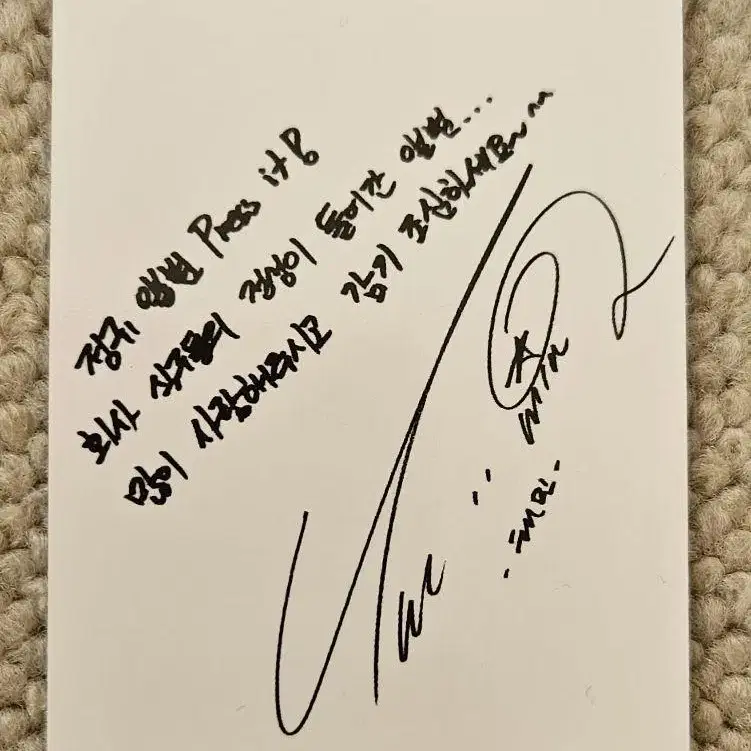 정규 앨범 Press it!
회사 식구들의 정성이 들어간 앨범...
많이 사랑해주시고 감기 조심하세요~^^
태민